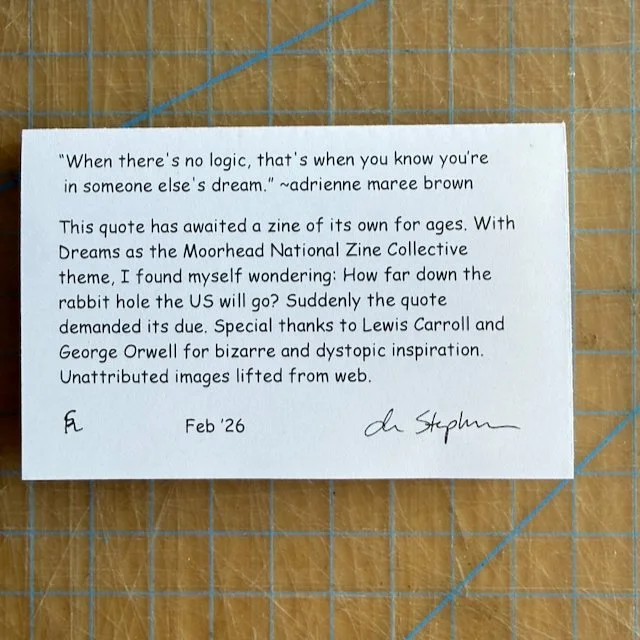 "When there's no logic, that's when you know you're
in someone else's dream." ~adrienne maree brown
This quote has awaited a zine of its own for ages. With
Dreams as the Moorhead National Zine Collective
theme, I found myself wondering: How far down the
rabbit hole the US will go? Suddenly the quote
demanded its due. Special thanks to Lewis Carroll and
George Orwell for bizarre and dystopic inspiration.
Unattributed images lifted from web.
Feb '26